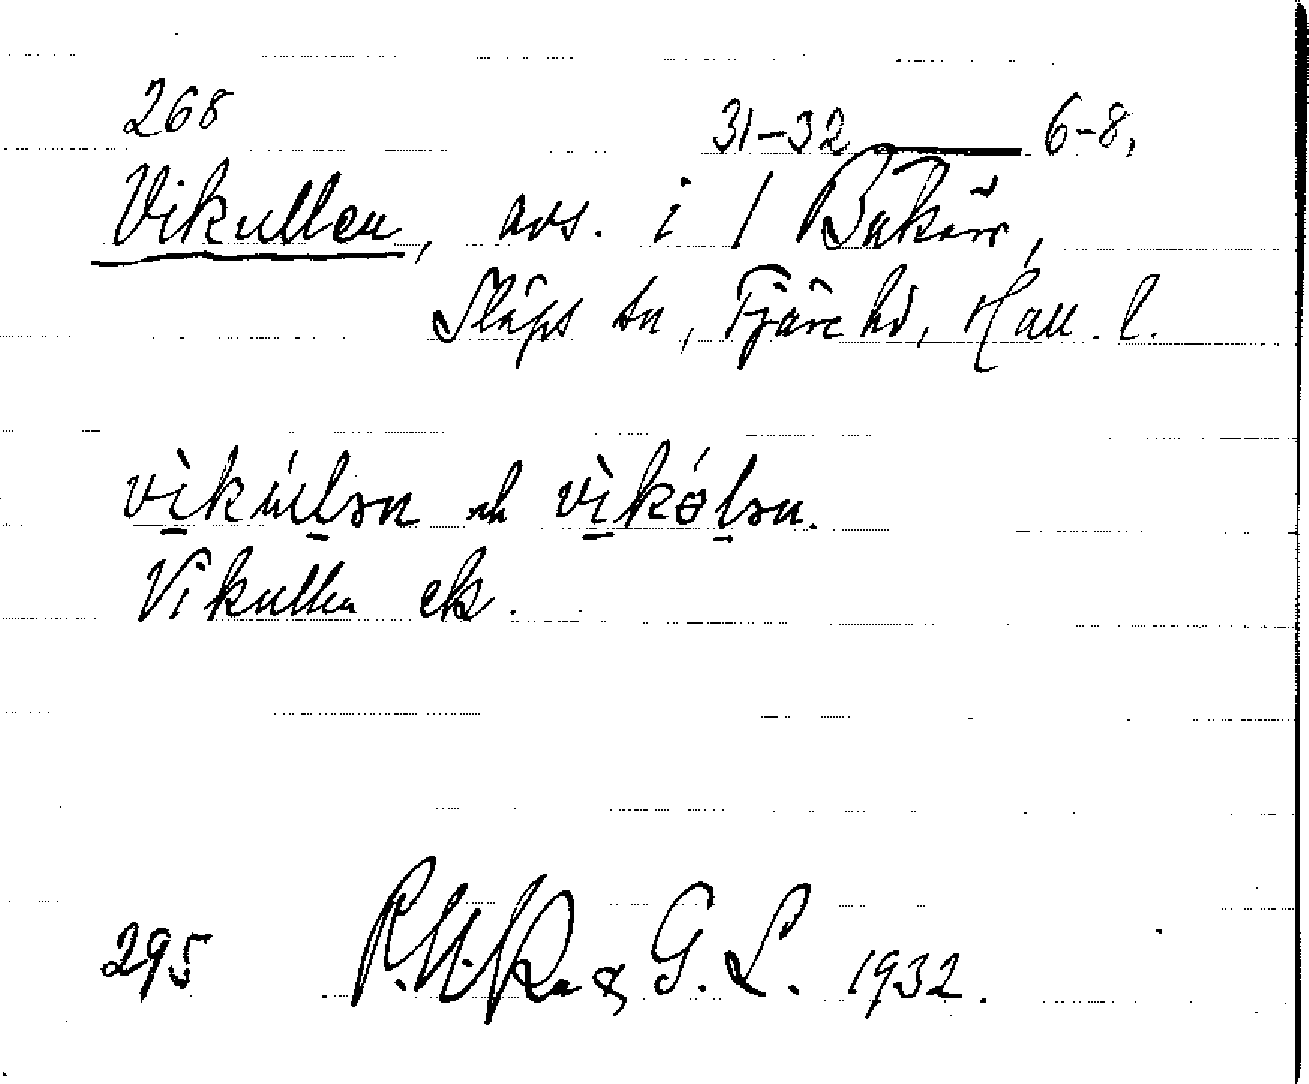 268
31-32 — 6-8,
Vikullen, avs. i 1 Bukärr,
Släps sn, Fjäre hd, Hall. l.
vìkúlǝn och vìkólǝn.
Vikullen ek.
295 G. L. 1932.